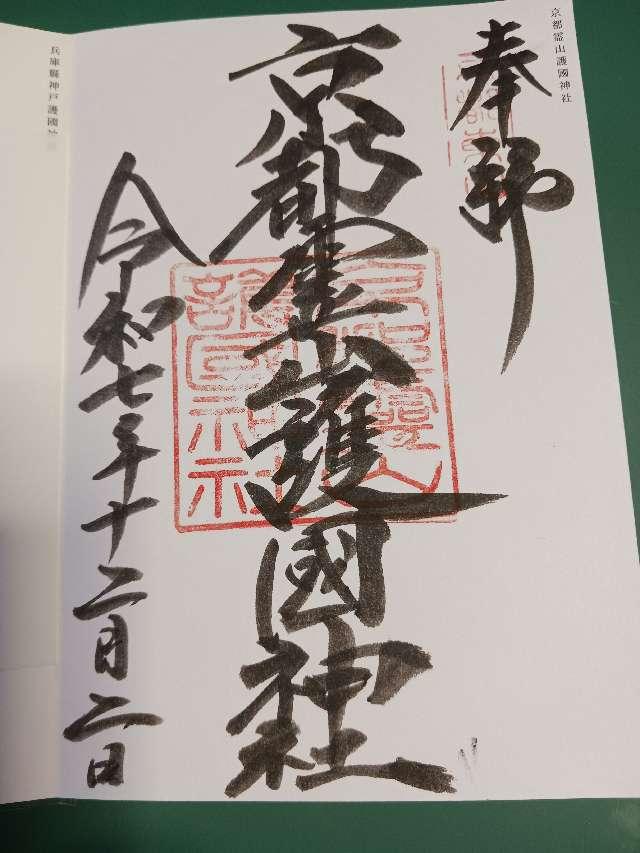 京都霊山護國神社
奉拝
京都霊山護國神社
令和七年十二月二日
兵庫縣神戸護國神